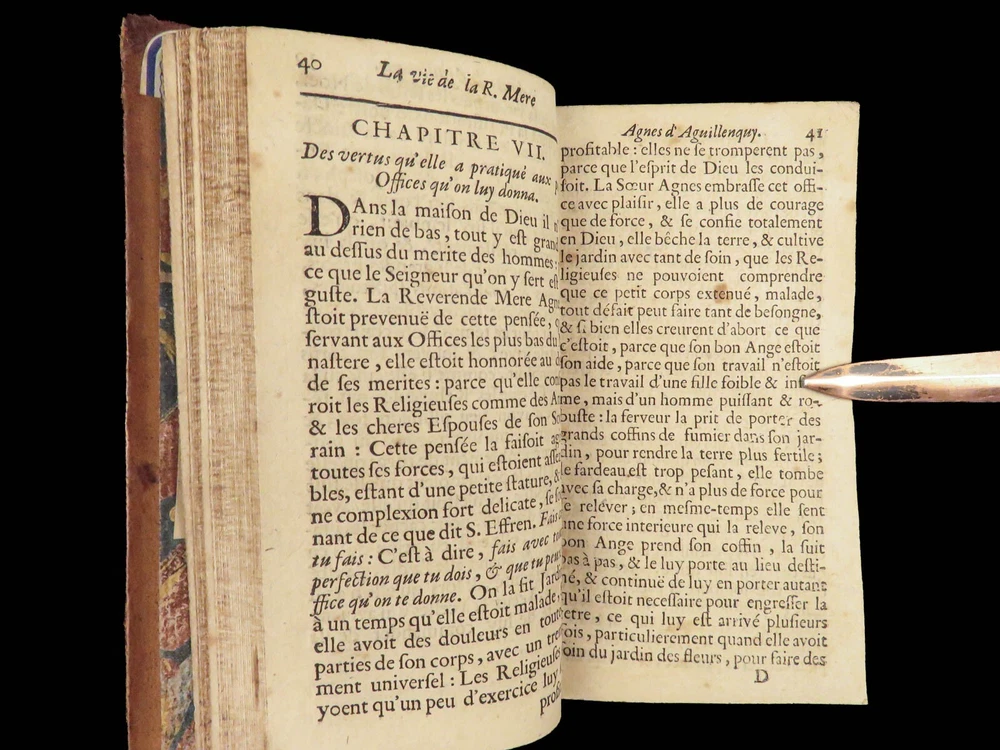 40 La vie de la R. Mere
CHAPITRE VII.
Des vertus qu'elle a pratiqué aux
Offices qu'on luy donna.
DAns la maiſon de Dieu il
rien de bas, tout y eſt grand
au deſſus du merite des hommes:
ce que le Seigneur qu'on y ſert eſt
guſte. La Reverende Mere
ſtoit prevenuë de cette penſée,
ſervant aux Offices les plus bas du
naſtere, elle eſtoit honnorée au
de ſes merites: parce qu'elle
roit les Religieuſes comme des
& les cheres Eſpouſes de ſon
rain: Cette penſée la faiſoit
toutes ſes forces, qui eſtoient
bles, eſtant d'une petite ſtature,
ne complexion fort delicate,
nant de ce que dit S. Effren. Fais
tu fais: C'eſt à dire, fais avec
perfection que tu dois, & que tu peux
ffice qu'on te donne. On la fit
à un temps qu'elle eſtoit malade,
elle avoit des douleurs en
parties de ſon corps, avec un
ment univerſel: Les Religieuſes
yoent qu'un peu d'exercice luy
Agnes d'Aguillenquy. 41
profitable: elles ne ſe tromperent pas,
parce que l'eſprit de Dieu les condui-
ſoit. La Sœur Agnes embraſſe cet offi-
ce avec plaiſir, elle a plus de courage
que de force, & ſe confie totalement
en Dieu, elle bêche la terre, & cultive
le jardin avec tant de ſoin, que les Re-
ligieuſes ne pouvoient comprendre
que ce petit corps extenué, malade,
tout défait peut faire tant de beſongne,
& ſi bien elles creurent d'abort ce que
c'eſtoit, parce que ſon bon Ange eſtoit
ſon aide, parce que ſon travail n'eſtoit
pas le travail d'une fille foible &
me, mais d'un homme puiſſant & ro-
buſte: la ferveur la prit de porter des
grands coffins de fumier dans ſon jar-
din, pour rendre la terre plus fertile;
le fardeau eſt trop peſant, elle tombe
avec ſa charge, & n'a plus de force pour
ſe relever; en meſme-temps elle ſent
une force interieure qui la releve, ſon
bon Ange prend ſon coffin, la ſuit
pas à pas, & le luy porte au lieu deſti-
né, & continuë de luy en porter autant
qu'il eſtoit neceſſaire pour engreſſer la
terre, ce qui luy eſt arrivé pluſieurs
fois, particulierement quand elle avoit
ſoin du jardin des fleurs, pour faire des
D